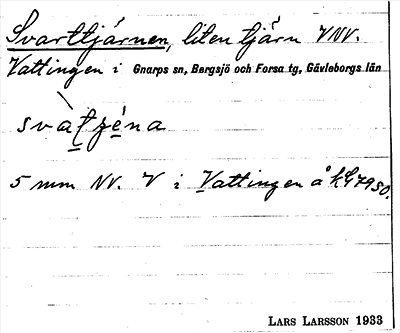 Svarttjärnen, liten tjärn VNV.
Vattingen i Gnarps sn, Bergsjö och Forsa tg, Gävleborgs län
5 mm NV. V i Vattingen å
LARS LARSSON 1933